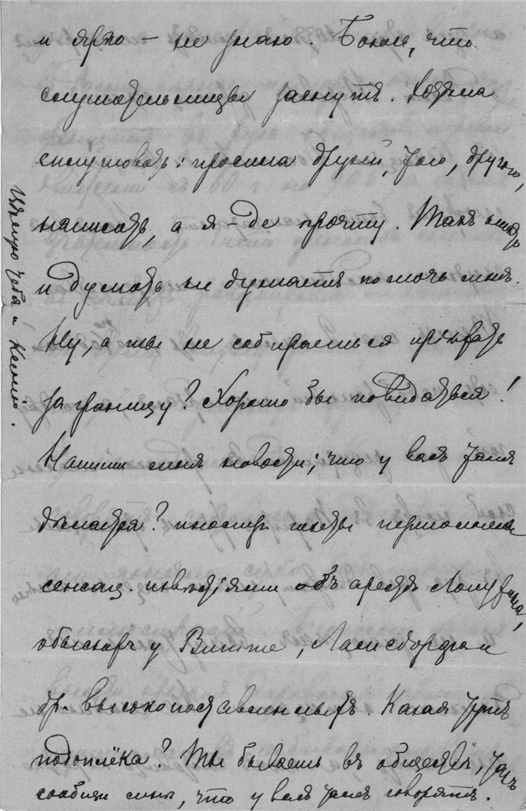 и ярко – не знаю. Боюсь, что
слушательницы заснутъ. Хотѣла
сжульничать: просила друзей, того, другого,
написать, а я-де прочту. Такъ никто
и думать не думаетъ помочь мнѣ.
Ну, а ты не собираешься пріѣхать
за границу? Хорошо бы повидаться!
Напиши мнѣ новости; что у васъ тамъ
дѣлается? газеты переполнены
сенсац. извѣстіями объ арестѣ Лопухина,
обыскахъ у Витте, Ламсдорфа и
др. высокопоставленныхъ. Какая тутъ
подоплёка? Ты бываешь въ обществѣ, такъ
сообщи мнѣ, что у васъ тамъ говорятъ.
Цѣлую тебя и